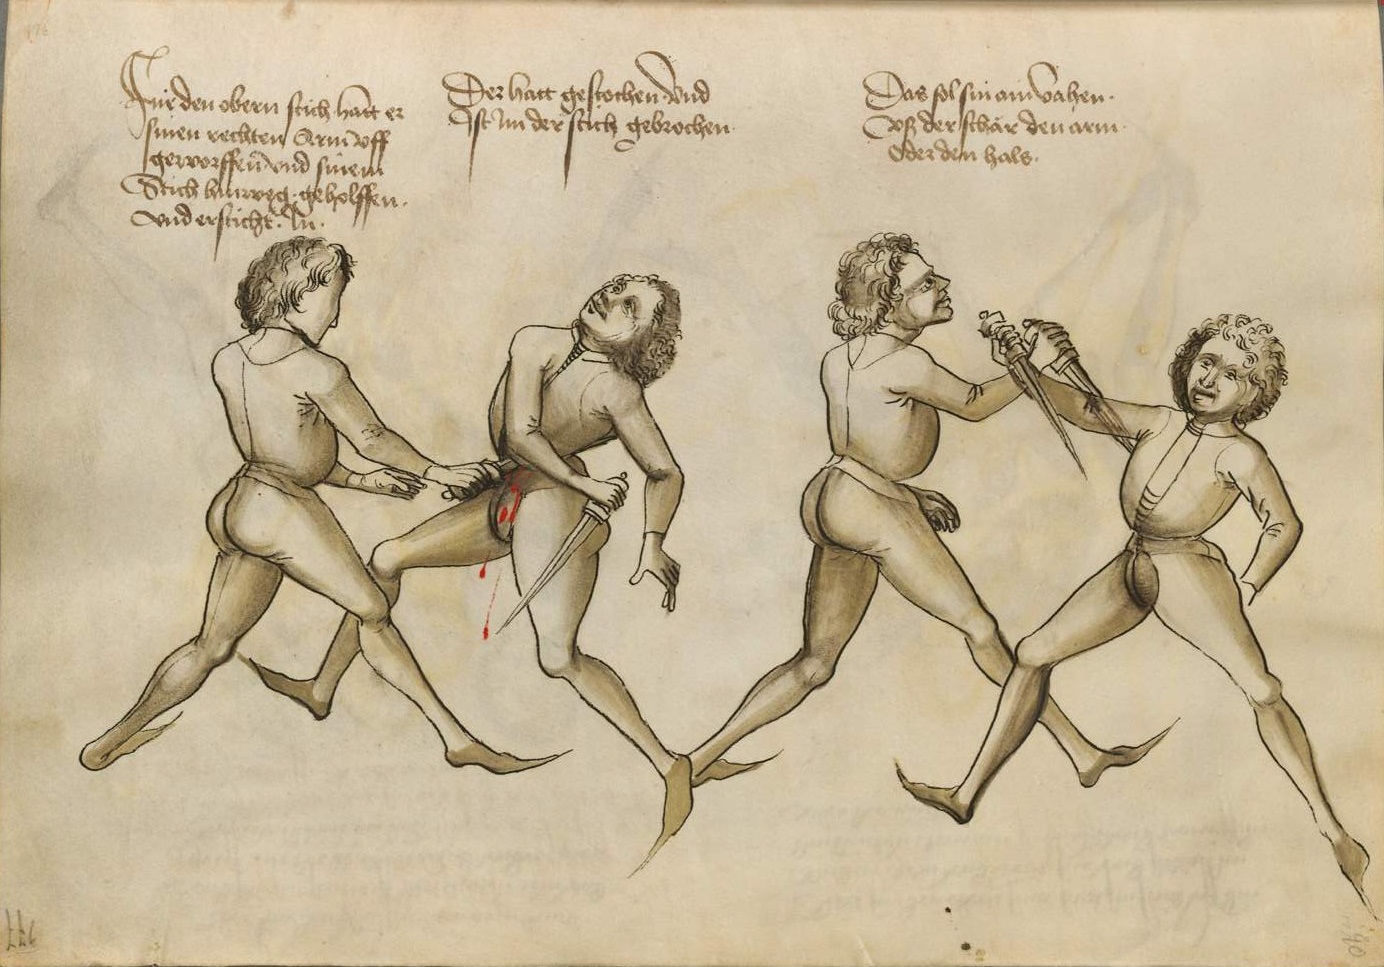 Für den obern stich hatt er
sinen rechten Arm uff
geworffen und sinem
Stich hinweg geholffen.
und ersticht In.
Der hatt gestochen Und
Ist Im der stich gebrochen.
Das sol sin ain Vahen.
Uß der schär den arm.
Oder den hals.